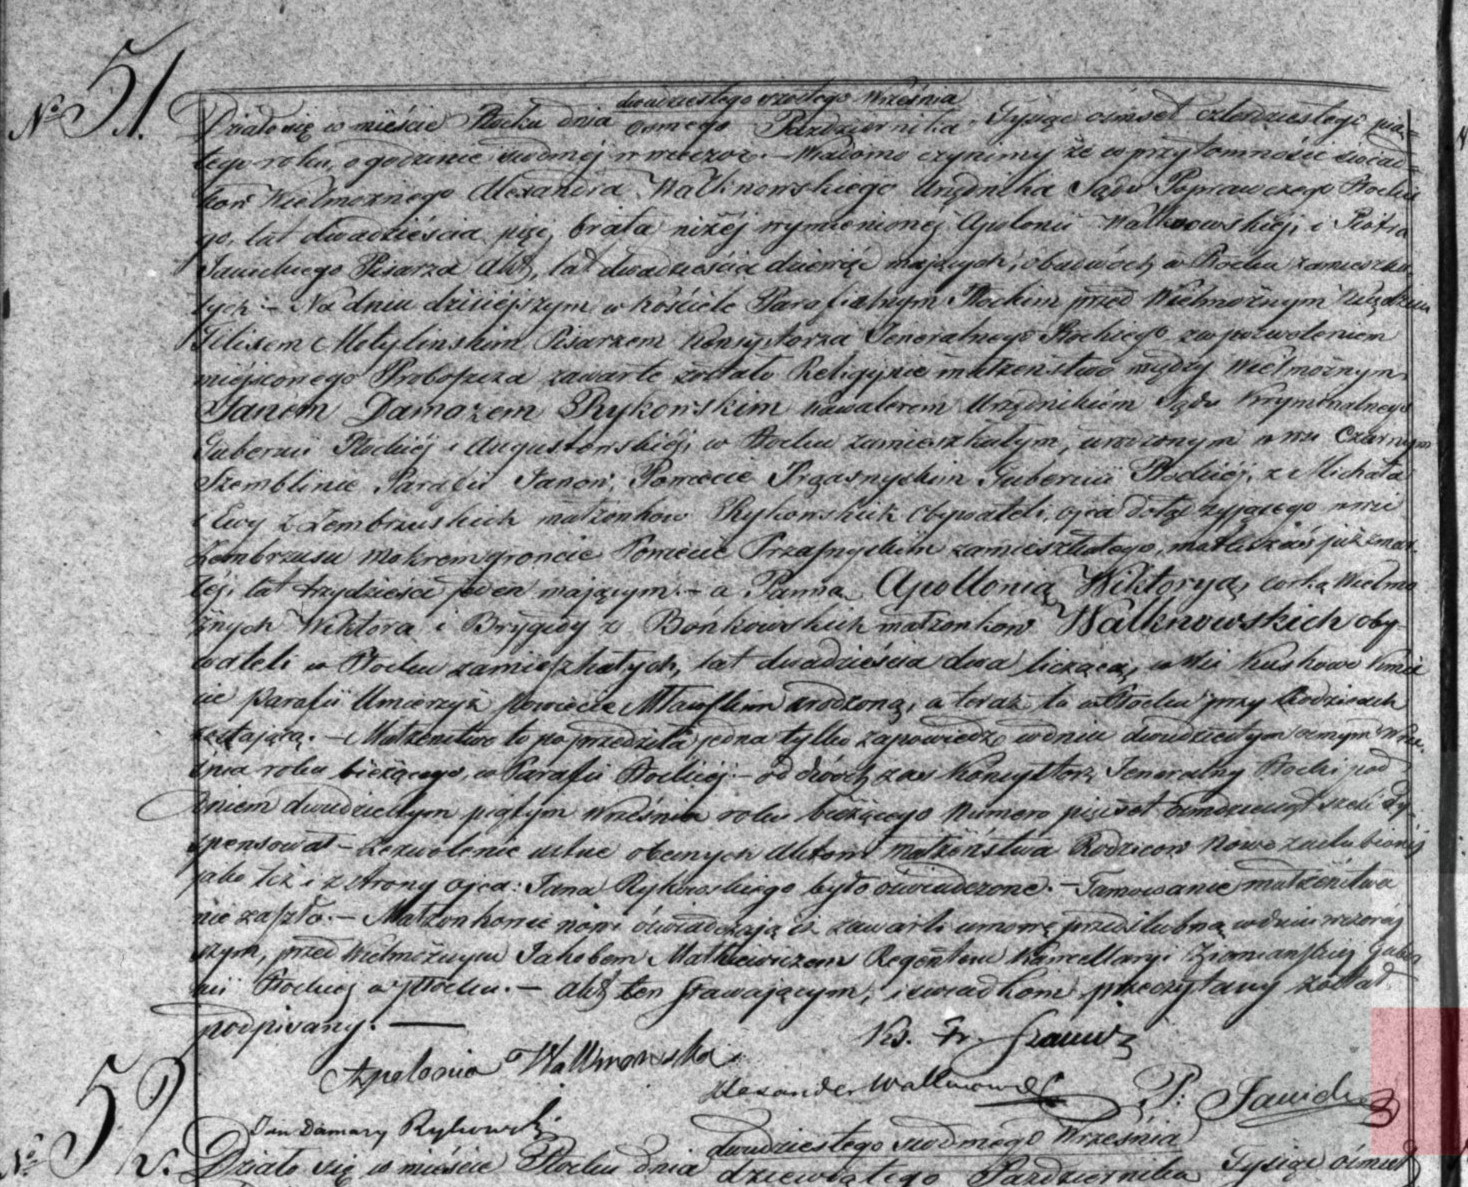 No 51.
dwudziestego szóstego Września
Działo się w mieście Płocku dnia ósmego Października Tysiąc ośmset czterdziestego pią-
tego roku, o godzinie siódméj w wieczor. – Wiadomo czynimy że w przytomności świad-
ków Wielmożnego Alexandra Walknowskiego Urzędnika Sądu Poprawczego Płockie
go, lat dwadzieścia pięć, brata niżéj wymienionéj Apolonii Walknowskiéj, i Piotra
Janickiego Pisarza Akt, lat dwadzieścia dziewięć mających, obudwóch w Płocku zamieszka-
łych. – Na dniu dzisiéjszym w kościele Parafialnym Płockim przed Wielmożnym Księdzem
Felixem Motylinskim Pisarzem Konsystorza Jeneralnego Płockiego za pozwoleniem
miejscowego Proboszcza zawarte zostało Religijne małżeństwo między Wielmożnym
Janem Damazem Rykowskim kawalerem Urzędnikiem Sądu Kryminalnego
Gubernii Płockiéj i Augustowskiéj, w Płocku zamieszkałym, urodzonym w wsi Czarnym
Szemblinie Parafii Janow, Powiecie Przasnyskim Gubernii Płockiéj, z Michała
i Ewy z Zembrzuskich małżonków Rykowskich Obywateli, ojca dotąd żyjącego w wsi
Zembrzusu mokrem groncie Powiecie Przasnyskim zamieszkałego, matki zaś już zmar-
łéj, lat trzydzieści jeden mającym. – a Panną Apollonią Wiktoryą, córką Wielmo
żnych Wiktora i Brygidy z Bońkowskich małżonków Walknowskich oby-
wateli w Płocku zamieszkałych, lat dwadzieścia dwa liczącą, w wsi Kuskowo Kmie
cie parafii Umierzyż Powiecie Mławskim urodzoną, a teraz tu w Płocku przy Rodzicach
zostającą. – Małżeństwo to poprzedziła jedna tylko zapowiedź w dniu dwudziestym ósmym Wrze-
śnia roku bieżącego, w Parafii Płockiéj – od dwóch zaś Konsystorz Jeneralny Płocki pod
dniem dwudziestym piątym Września roku bieżącego Numero pięćset ośmdziesiąt sześć dy-
spensował – Zezwolenie ustne obecnych Aktowi małżeństwa Rodziców Nowo zaślubionéj
jako też i z strony ojca: Jana Rykowskiego było oświadczone. – Tamowanie małżeństwa
nie zaszło. – Małżonkowie nowi oświadczają iż zawarli umowę przedślubną w dniu wczoraj-
szym, przed Wielmożnym Jakobem Matkiewiczem Regentem Kancellaryi Ziemiańskiéj Guber
nii Płockiéj w Płocku. – Akt ten stawającym, i świadkom przeczytany został
podpisany. —
Ks. Fr.
Apolonia Walknowska.
Alexander Walknowski P. Janicki
Jan Damazy Rykowski
No 52.
dwudziestego siódmego Września
Działo się w mieście Płocku dnia dziewiątego Października Tysiąc ośmset